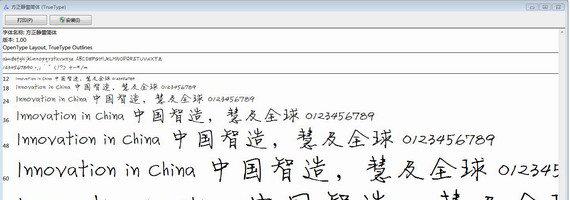 方正静蕾简体 (TrueType)
打印(P) 安装(I)
字体名称: 方正静蕾简体
版本: 1.00
OpenType Layout, TrueType Outlines
abcdefghijklmnopqrstuvwxyz ABCDEFGHIJKLMNOPQRSTUVWXYZ
12 Innovation in China 中国智造，慧及全球 0123456789
18 Innovation in China 中国智造，慧及全球 0123456789
24 Innovation in China 中国智造，慧及全球 0123456789
36 Innovation in China 中国智造，慧及全球 0123456789
48 Innovation in China 中国智造，慧及全球 0123456789
60 Innovation in China 中国智造，慧及全球 012345
Innovation in China 中国智造，慧及全球